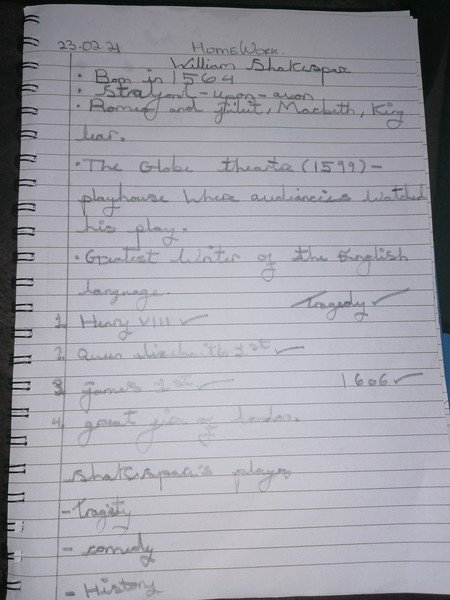 23.02.21 HOMEWORK.
William Shakespar
• Born in 1564
• Stratford-upon-avon
• Romeo and Juliit, Macbeth, King
lear.
• The Globe theatre (1599) -
playhouse where audiancies watched
his play.
• Greatest writer of the English
language.
Tragedy ✓
1 Henry VIII ✓
2 Queen elizabeth 1st ✓
3 James 1st ✓ 1606 ✓
4 great fire of london.
Shakespar's players
- Tragety
- comedy
- History